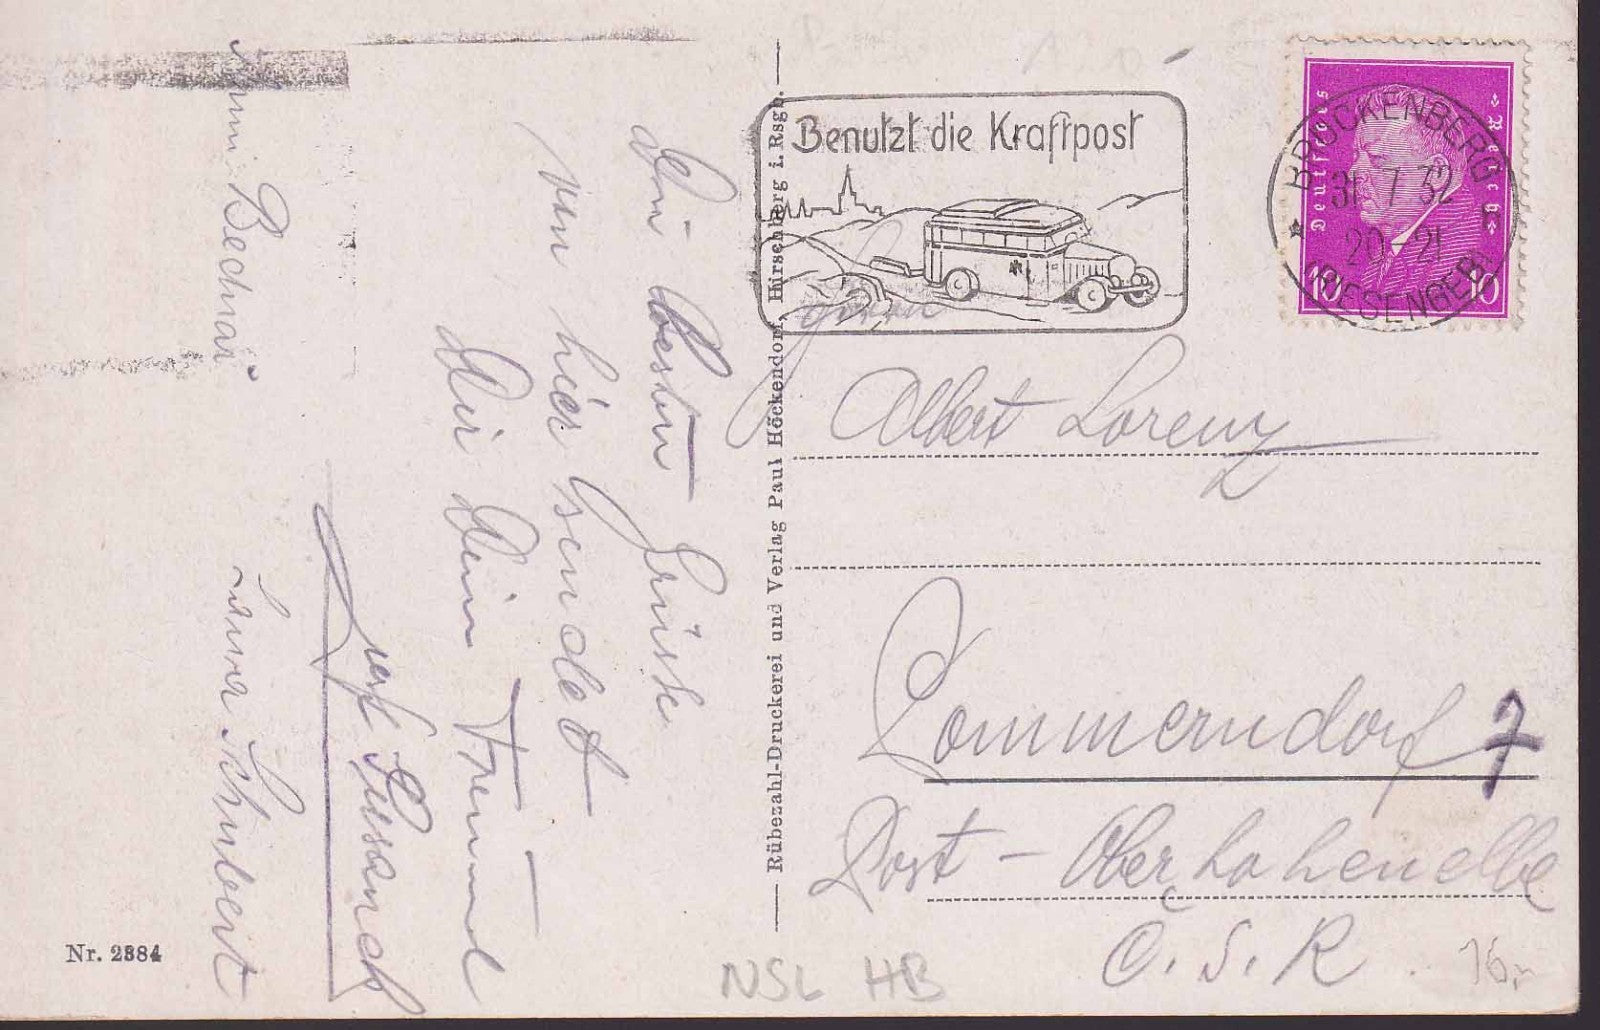 Benutzt die Kraftpost
BRÜCKENBERG
31 7 32
20-21
(RIESENGEB)
Deutsches Reich
10 10
Albert Lorenz
Pommerndorf 7
Post - Oberhohenelbe
Č. S. R.
Die besten Grüße
von hier sendet
Dir Dein Freund
Schubert
Rübezahl-Druckerei und Verlag Paul Höckendorf, Hirschberg i. Rsgb.
Nr. 2384
NSL HB
16,-